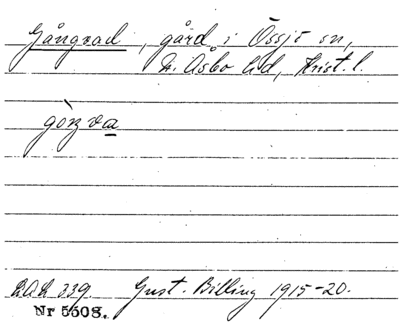 Gångvad, gård i Össjö sn,
N. Åsbo hd, Krist. l.
gòŋva
LAL 339. Gust. Billing 1915-20.
Nr 5508.